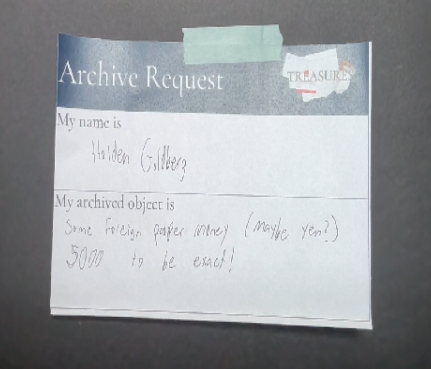 Archive Request
TREASURES
My name is
Holden Goldberg
My archived object is
Some foreign paper money (maybe yen?)
5000 to be exact!